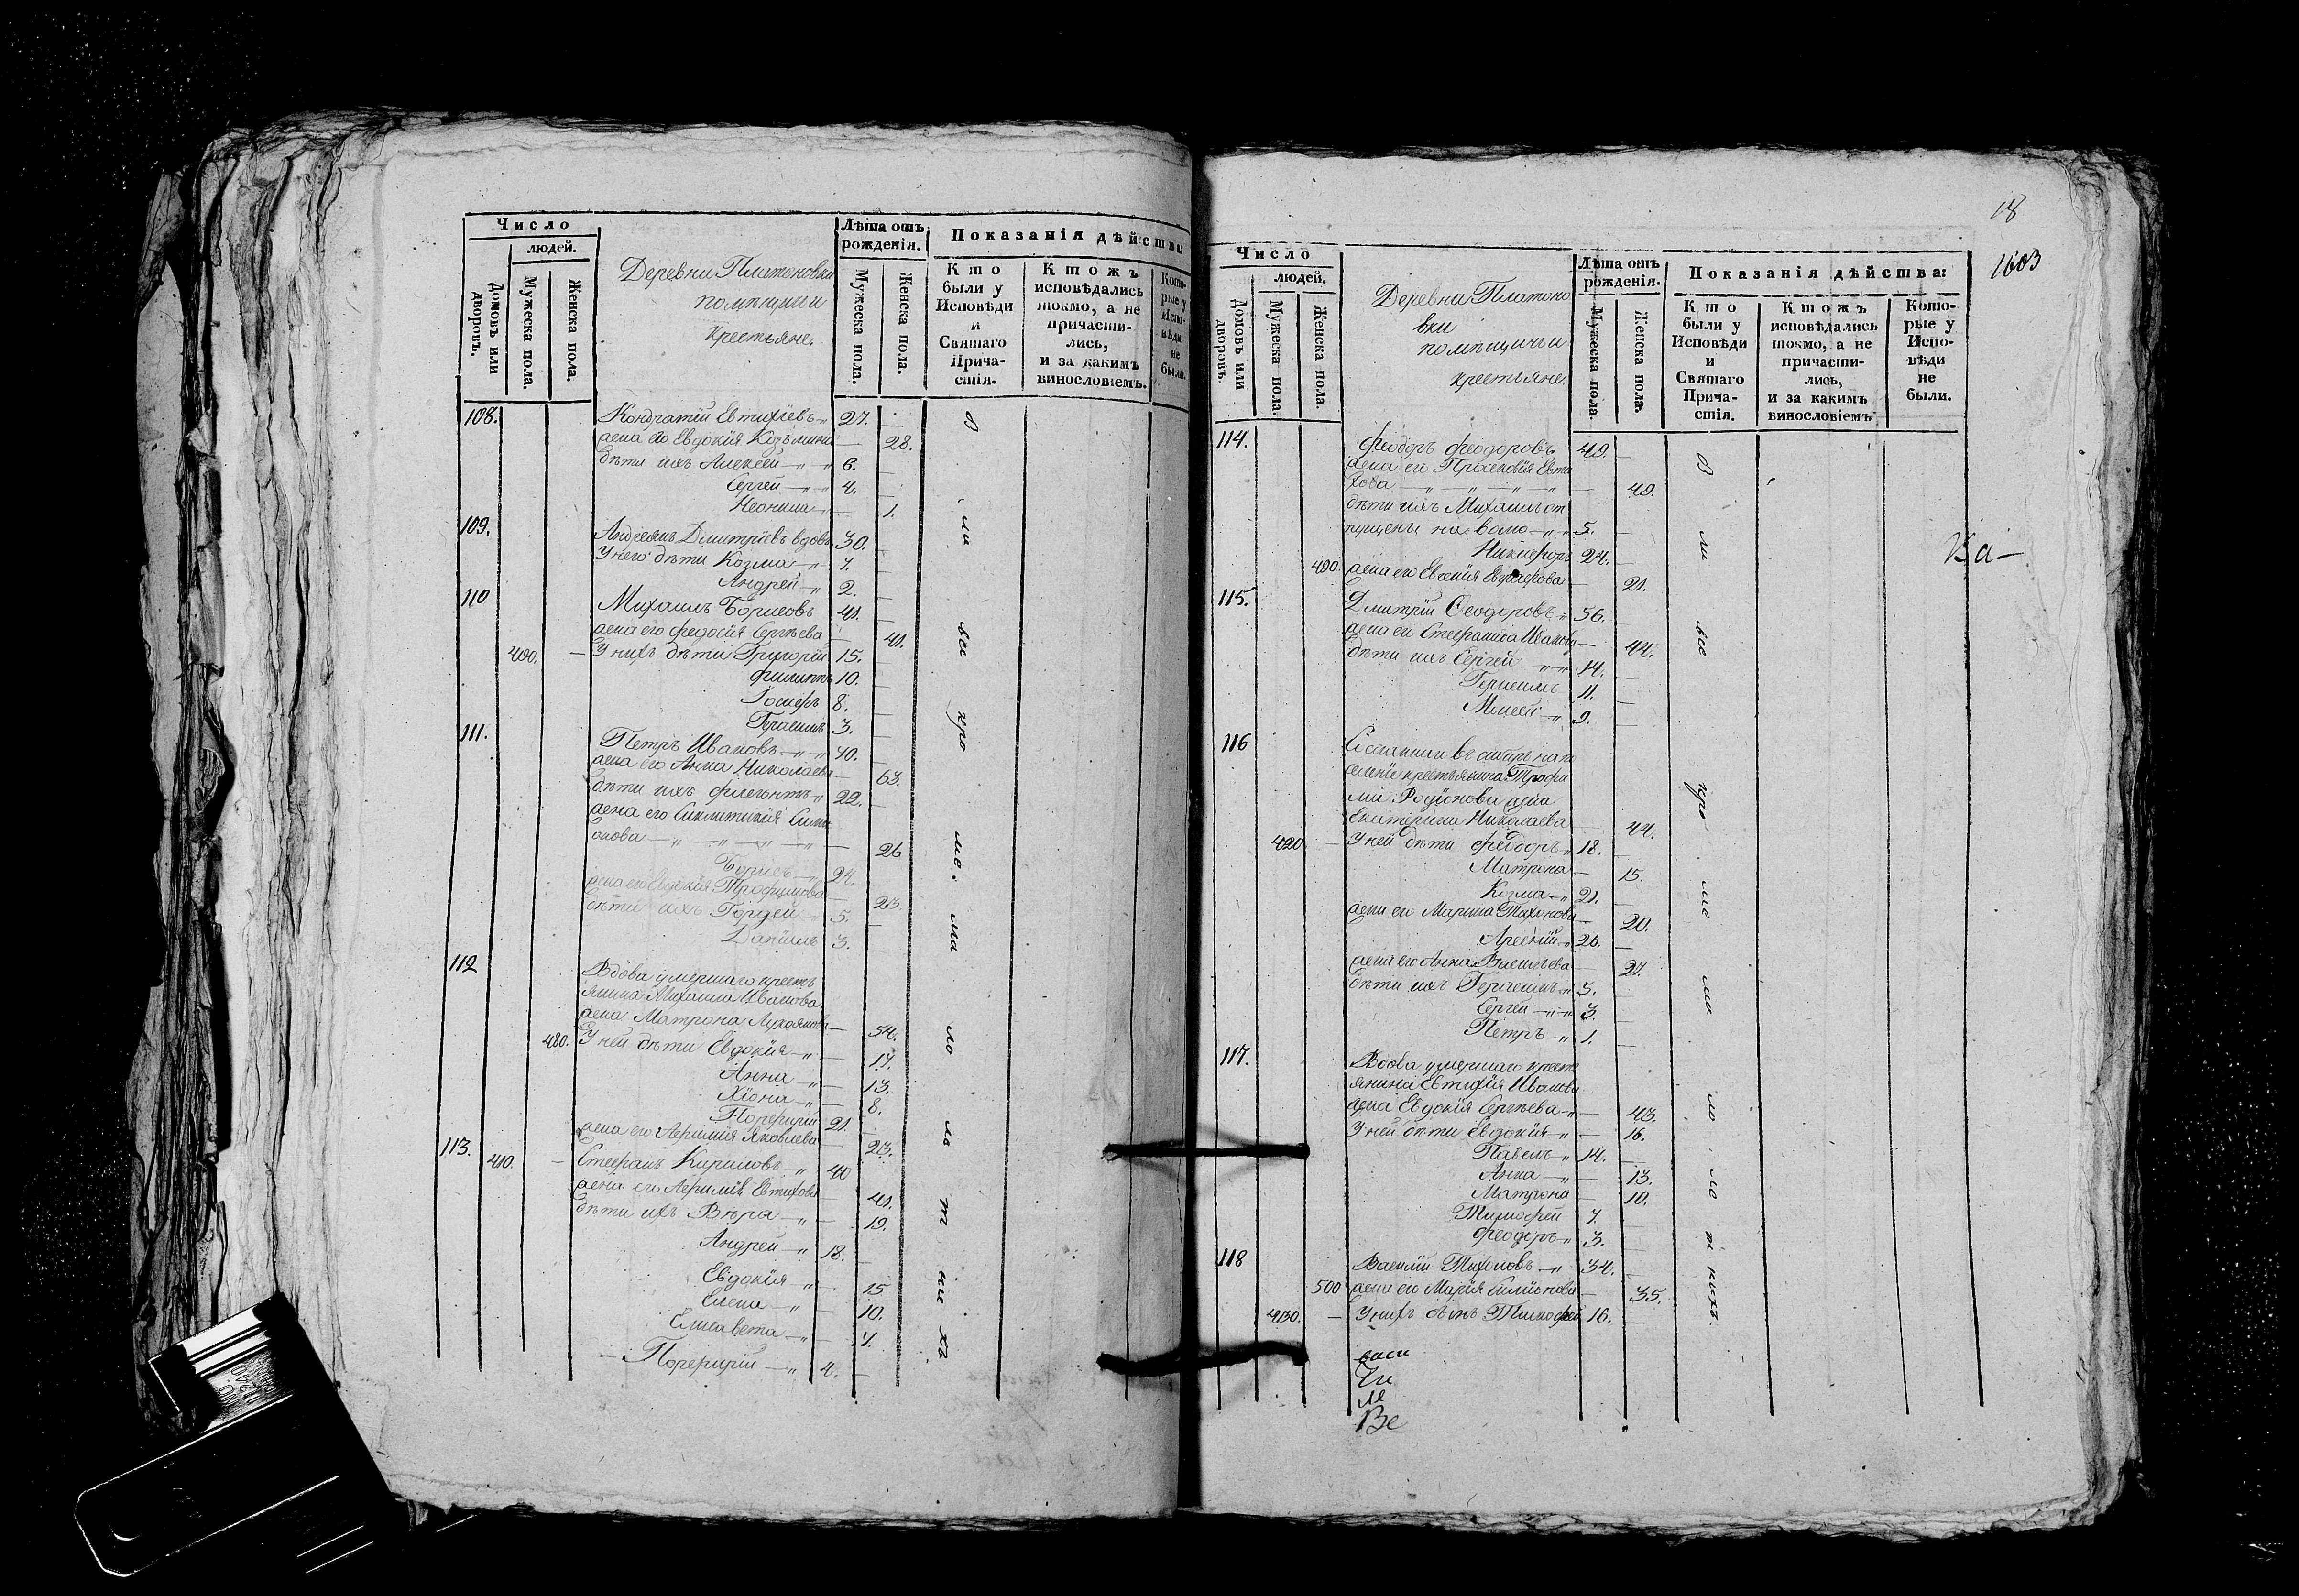 Число
людей.
Домовъ или дворовъ.
Мужеска пола.
Женска пола.
Деревни Платоновки
помѣщичьи
крестьяне.
Лѣта отъ рожденія.
Мужеска пола.
Женска пола.
Показанія дѣйства:
Кто были у Исповѣди и Святаго Причастія.
Ктожъ исповѣдались токмо, а не причастились, и за какимъ винословіемъ.
Которые у Исповѣди не были.
108. Кондратій Евтихіевъ 27.
жена его Евдокія Козьмина 28.
дѣти ихъ Алексей 6.
Сергей 4.
Неонила 1.
109. Андреянъ Дмитріевъ вдовъ 30.
У него дѣти Козма 7.
Андрей 2.
110 Михаилъ Борисовъ 41.
жена его Федосія Сергѣева 41.
400. У нихъ дѣти Григорій 15.
Филиппъ 10.
Іосифъ 8.
Герасимъ 3.
111. Петръ Ивановъ 70.
жена его Анна Николаева 63.
дѣти ихъ 22.
жена его Синклитикія Симе
онова 26
Борисъ 24.
жена его Евдокія Трофимова 23.
дѣти ихъ Гордей 5.
Даніилъ 3.
112 Вдова умершаго кресть
янина Михаила Иванова
жена Матрона 54.
480. У ней дѣти Евдокія 17.
Анна 13.
Хіона 8.
Порфирій 21.
жена его Яковлева 23.
113. 410. Стефанъ Кириловъ 40
жена его Евтихова 41.
дѣти ихъ Вѣра 19.
Андрей 18.
Евдокія 15
Елена 10.
Елисавета 7.
Порфирій 4.
18
1603
Число
людей.
Домовъ или дворовъ.
Мужеска пола.
Женска пола.
Деревни Платоно
вки
помѣщичьи
крестьяне.
Лѣта отъ рожденія.
Мужеска пола.
Женска пола.
Показанія дѣйства:
Кто были у Исповѣди и Святаго Причастія.
Ктожъ исповѣдались токмо, а не причастились, и за какимъ винословіемъ
Которые у Исповѣди не были.
114. Феодоръ Феодоровъ 49.
жена его Прасковія Евти
хова 49.
дѣти ихъ Михаилъ от
пущенъ на волю 5.
Никифоръ 24.
490. жена его Евгенія 21.
115. Дмитрій Феодоровъ 56.
жена его Стефанида Иванова 44.
дѣти ихъ Сергей 14.
Герасимъ 11.
Моисей 9.
116 Сосланнаго въ сибирь на по
селеніе крестьянина Трофи
ма Родіонова жена
Екатерина Николаева 44.
420 У ней дѣти Феодоръ 18.
Матрона 15.
Козма 21.
жена его Марина Тихонова 20.
Арсеній 26.
жена его Анна Васильева 27.
дѣти ихъ Герасимъ 5.
Сергей 3.
Петръ 1.
117. Вдова умершаго кресть
янина Евтихія Иванова
жена Евдокія Сергѣева 43.
У ней дѣти Евдокія 16.
Павелъ 14.
Анна 13.
Матрона 10.
Тимофей 7.
Феодоръ 3.
118 Василій Тихоновъ 34.
500 жена его Марія Симіонова 35.
430. У нихъ сынъ Тимофей 16.
Ва-
Ве